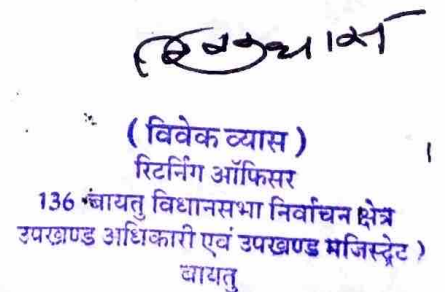 ( विवेक व्यास )
रिटर्निंग ऑफिसर
136 बायतु विधानसभा निर्वाचन क्षेत्र
उपखण्ड अधिकारी एवं उपखण्ड मजिस्ट्रेट )
बायतु